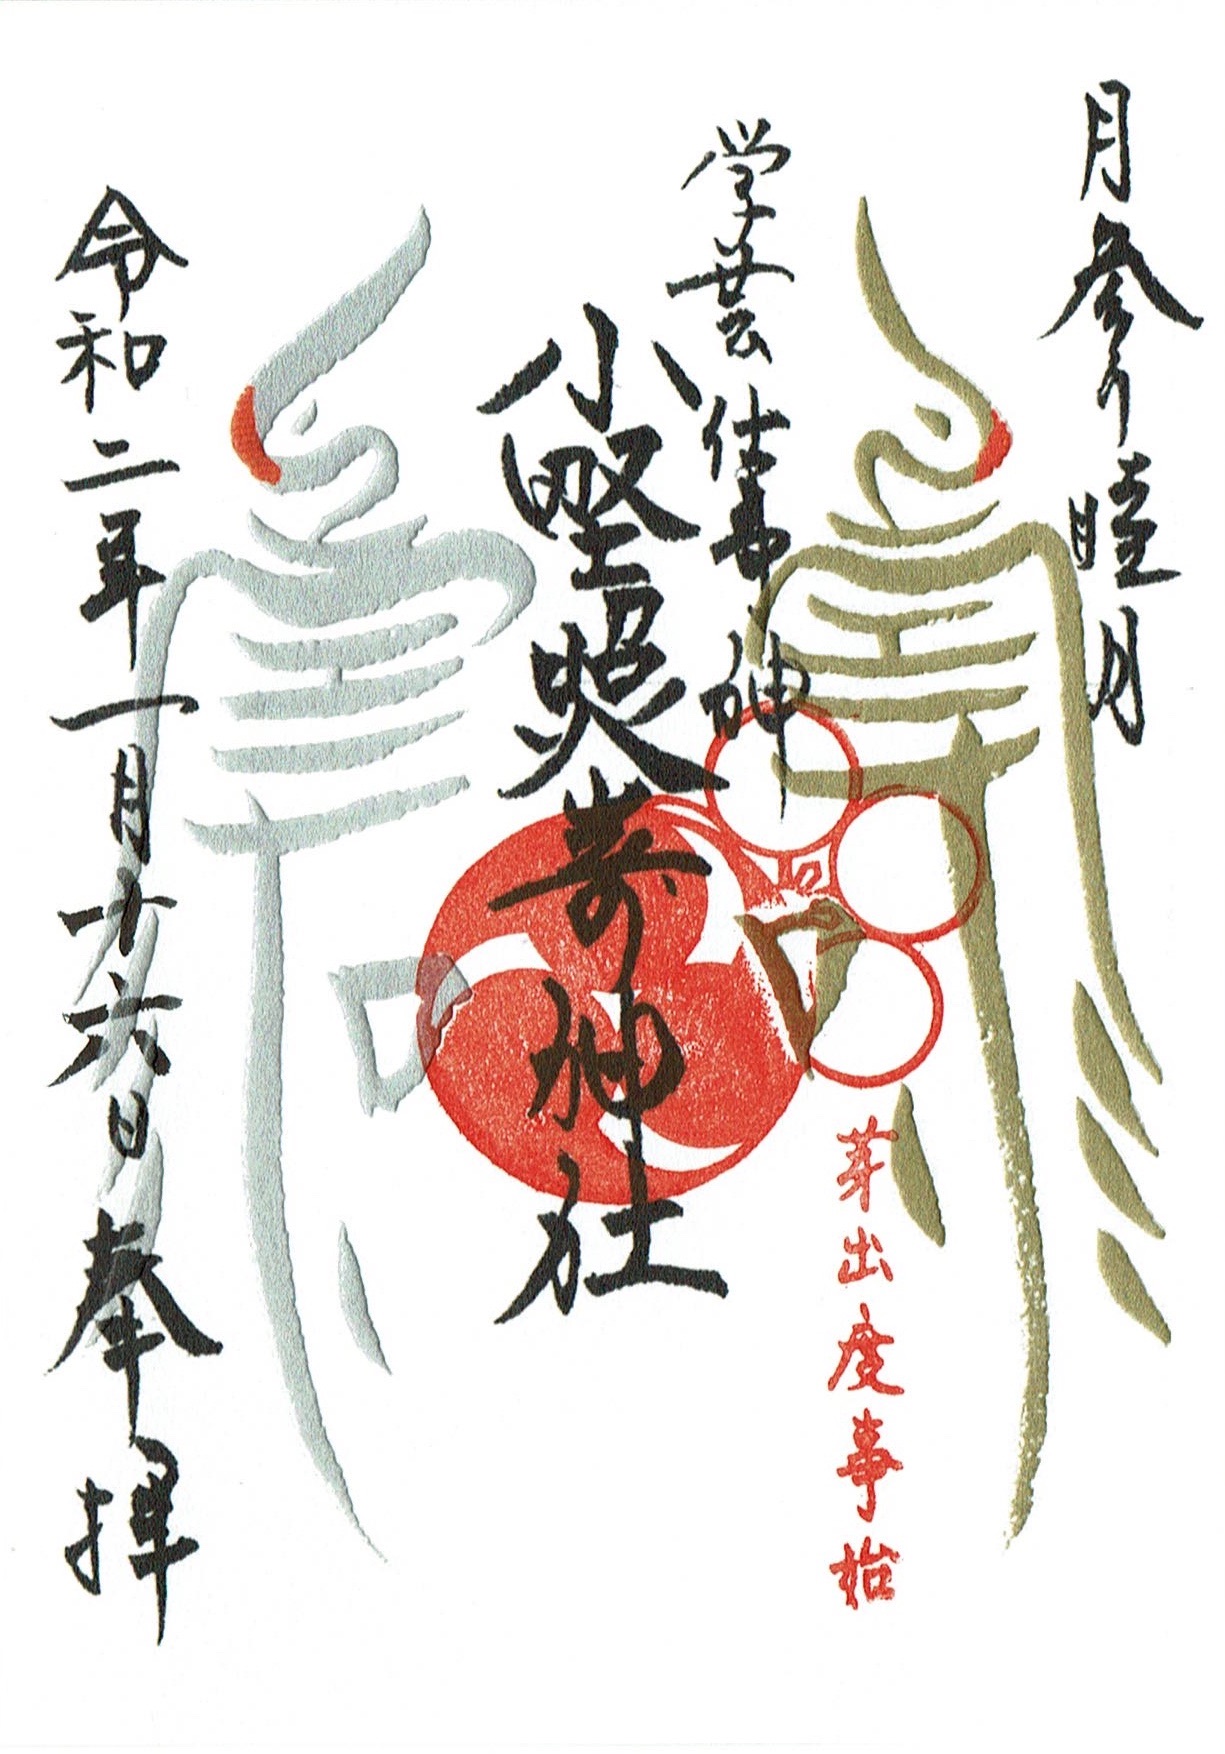 月参り睦月
学芸仕事神
小野照嵜神社
芽出度事始
令和二年一月十六日奉拝